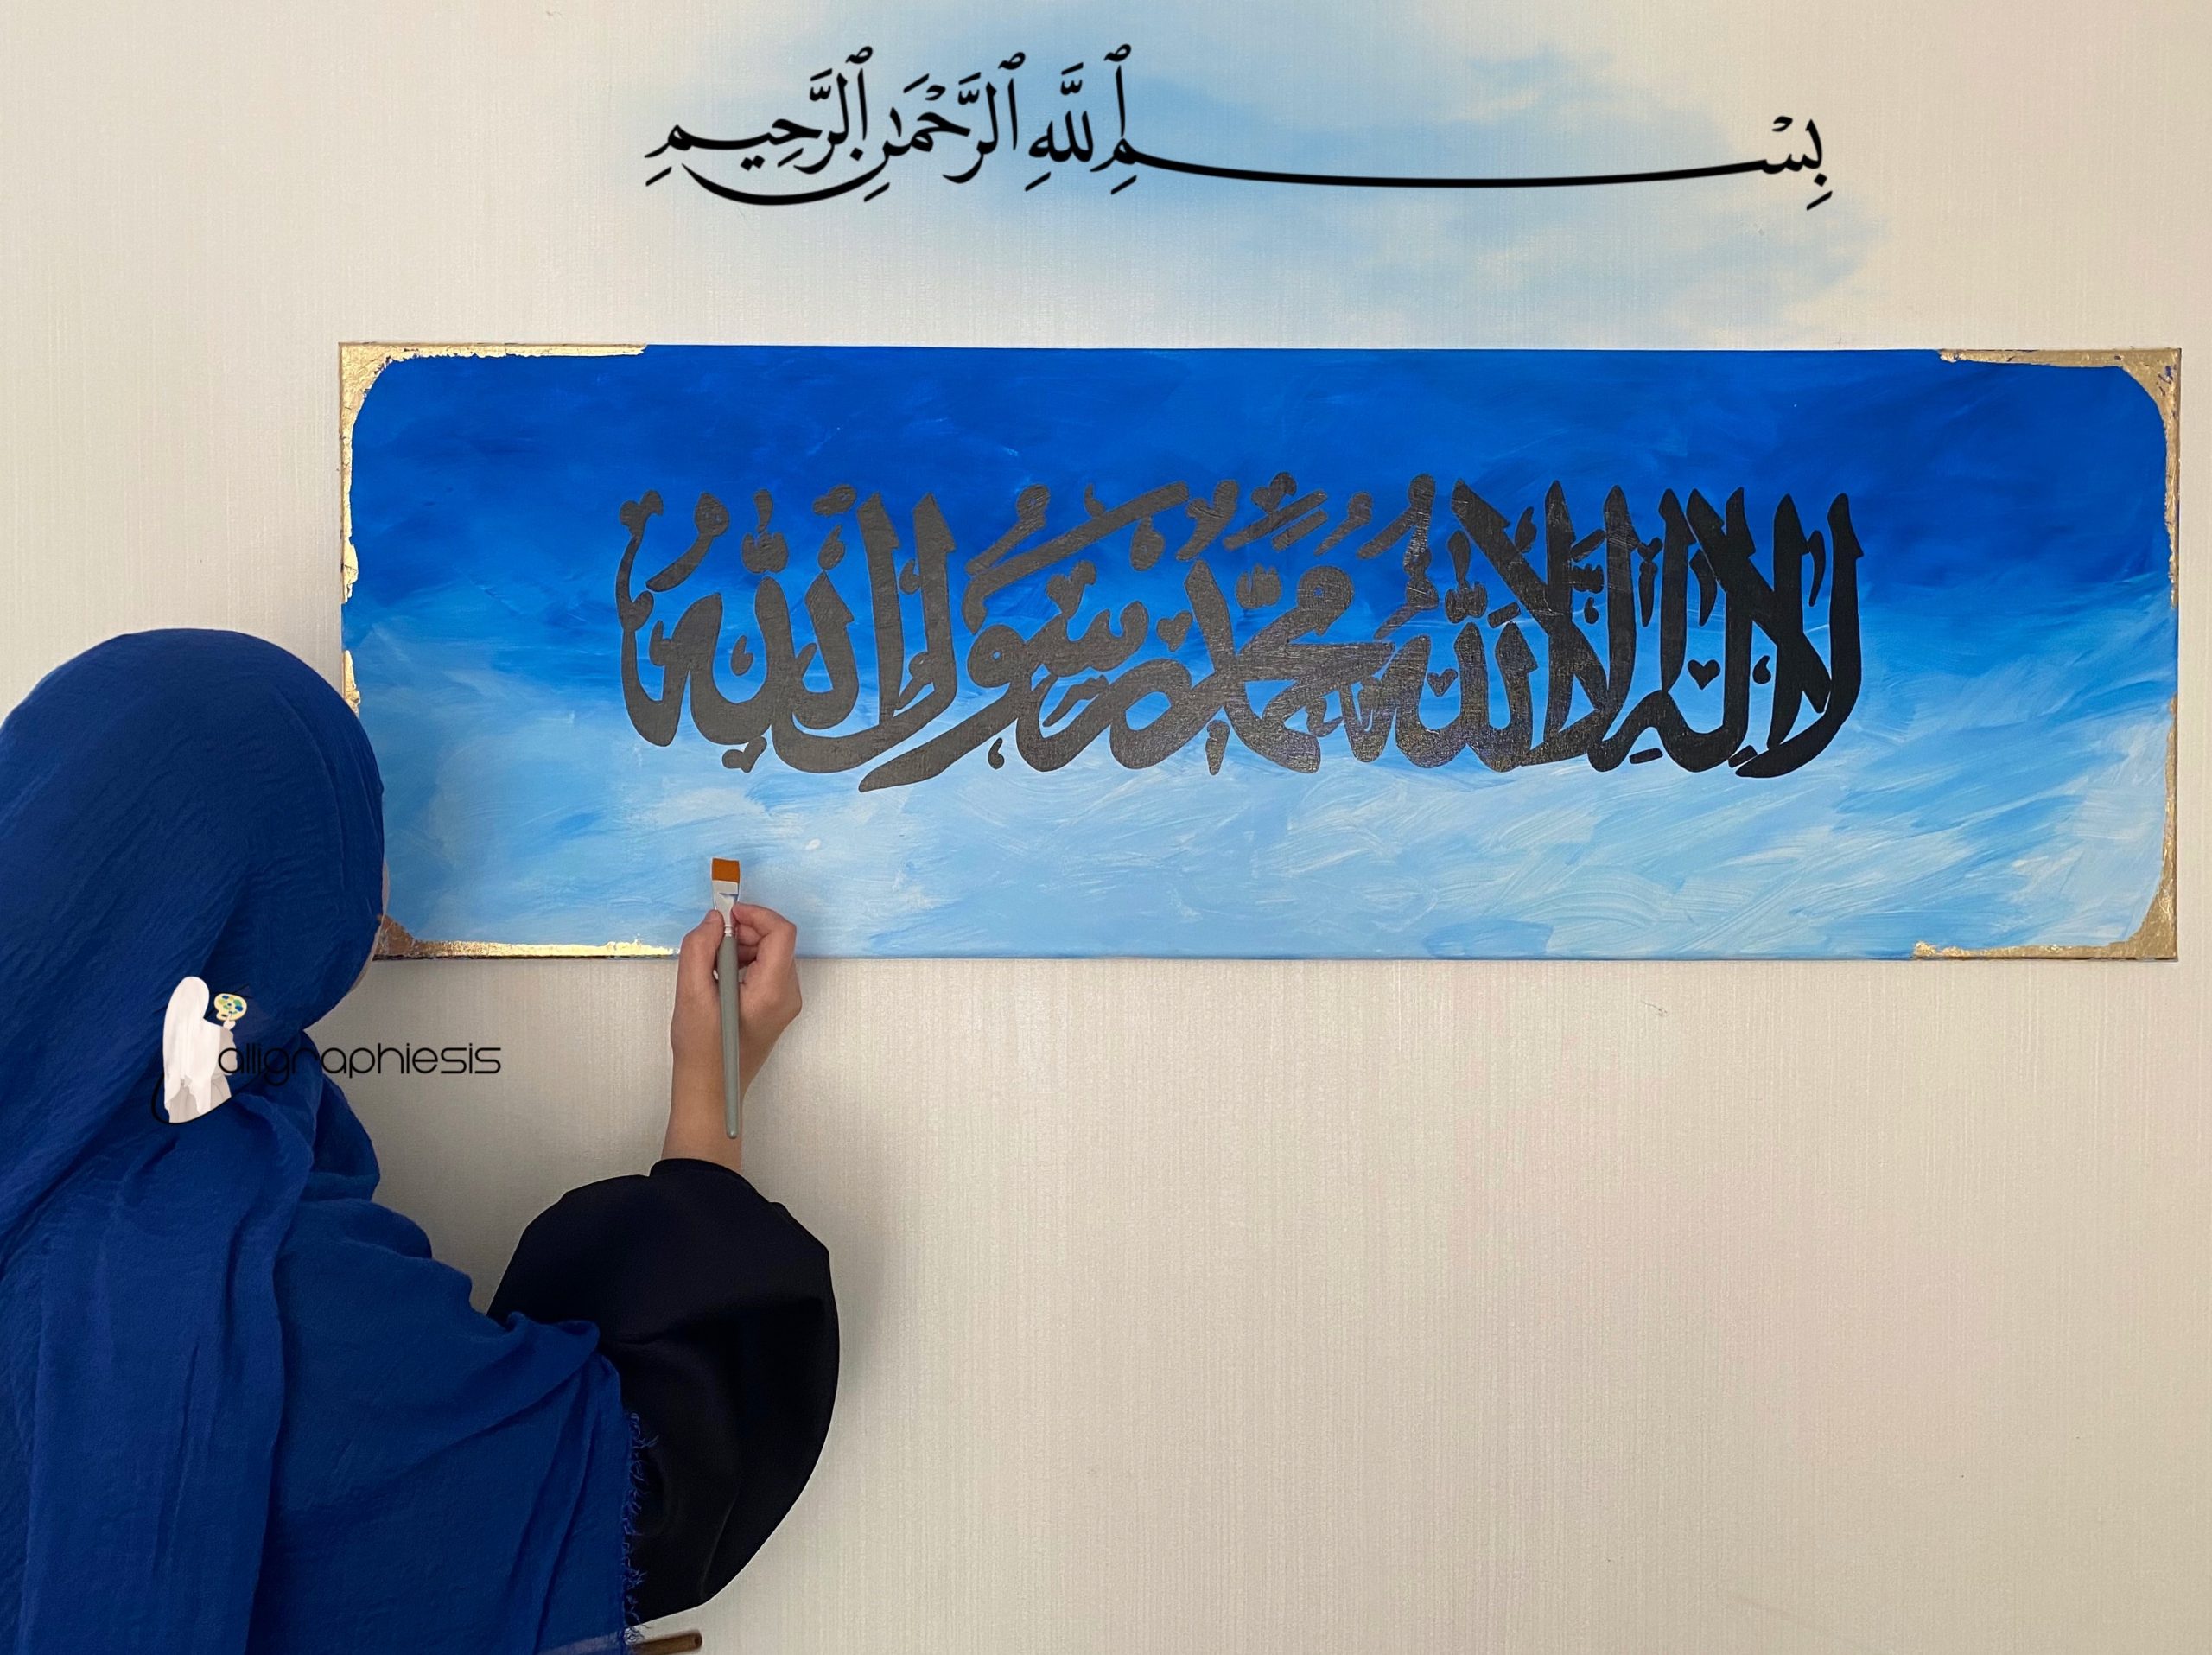 بِسْمِ ٱللَّهِ ٱلرَّحْمَٰنِ ٱلرَّحِيمِ
لا إله إلا الله محمد رسول الله
alligraphiesis